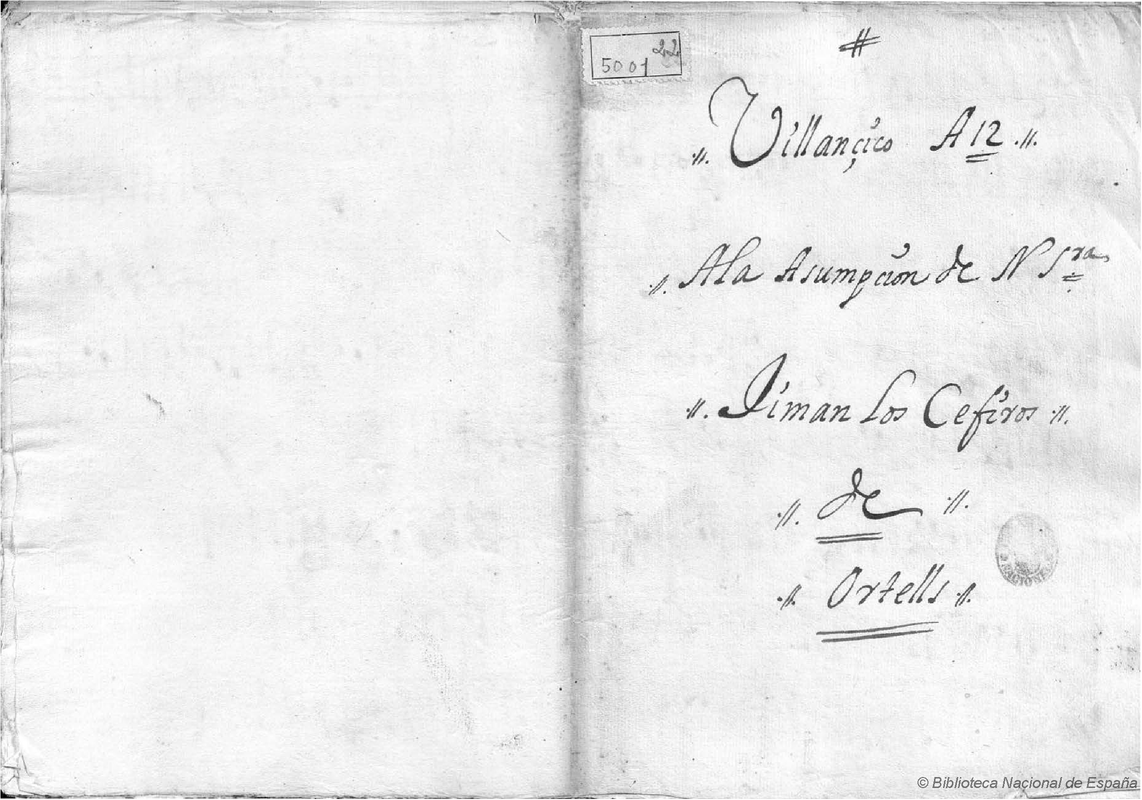 5001 22
#
Villançico A 12
A la Asumpcion de N Sra
Jiman los Cefiros
de
Ortells
© Biblioteca Nacional de España